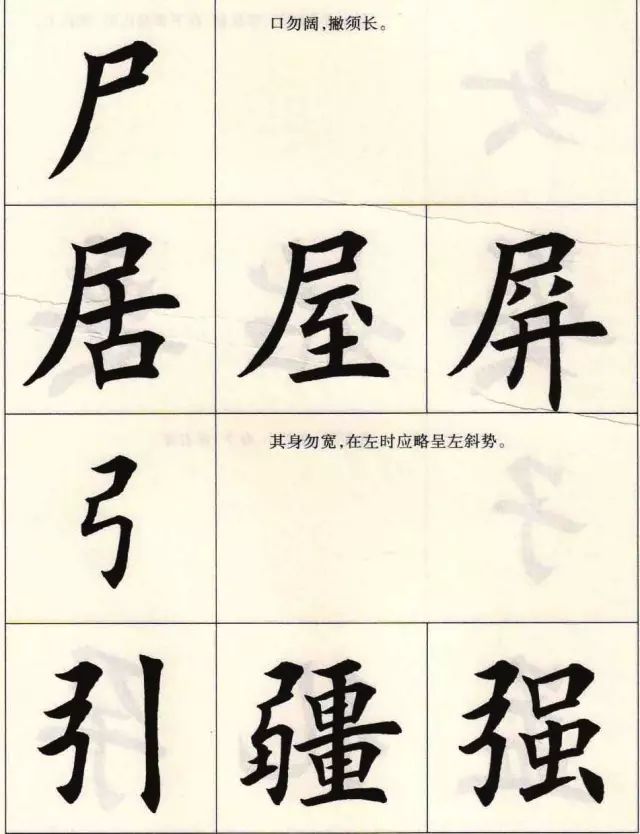 口勿阔，撇须长。
尸
居 屋 屏
其身勿宽，在左时应略呈左斜势。
弓
引 疆 强